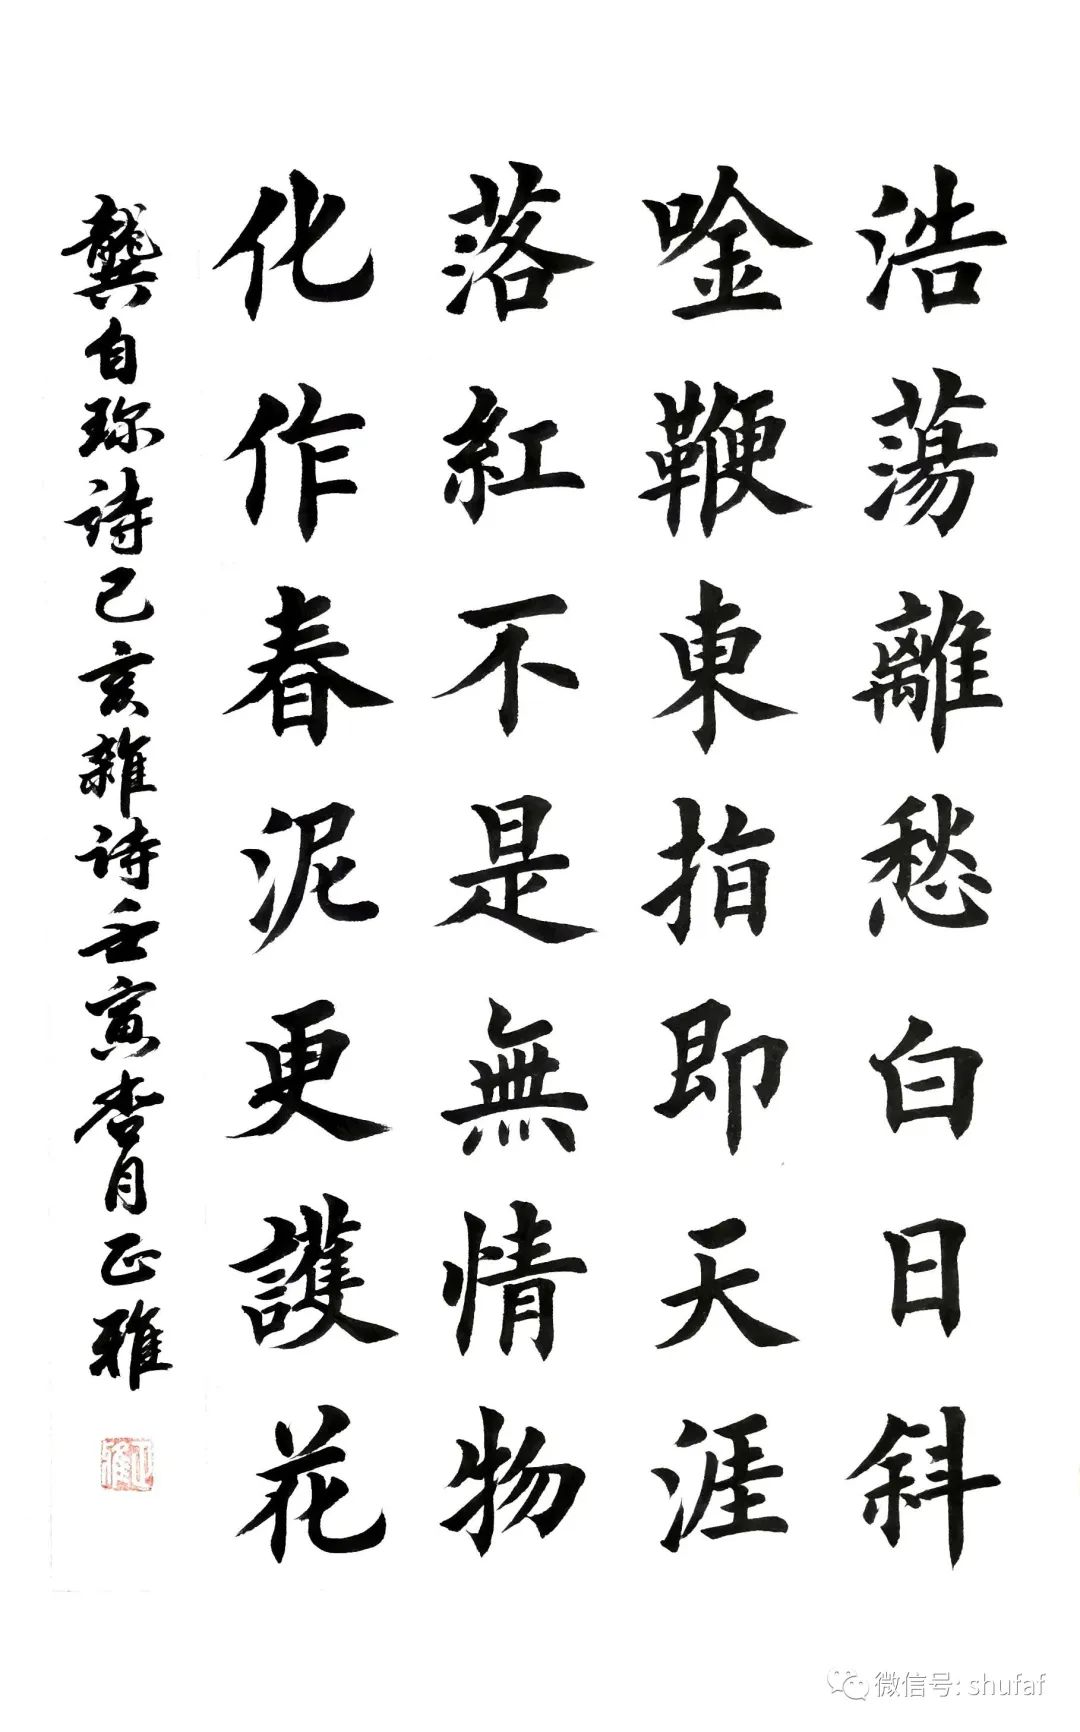 浩蕩離愁白日斜
唫鞭東指即天涯
落紅不是無情物
化作春泥更護花
龔自珍詩己亥雜詩壬寅杏月正雅
正雅
微信号: shufaf